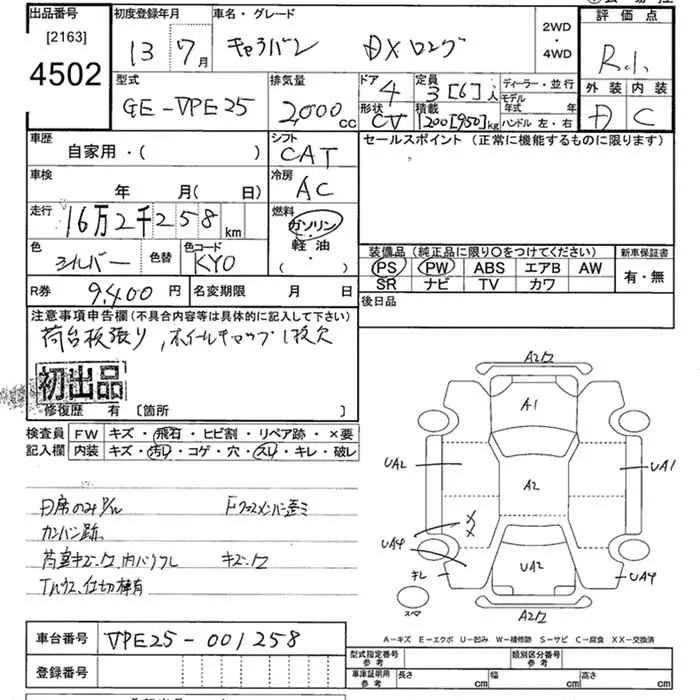 出品番号
[2163]
4502
初度登録年月
13 7月
車名・グレード
キャラバン DXロング
2WD
・
4WD
評価点
外装 内装
D C
型式
GE-VPE25
排気量
2,000cc
ドア
4
定員
3[6]人
形状
CV
積載
1200[950]kg
ディーラー・並行
モデル
年式 年
ハンドル 左・右
車歴
自家用・( )
シフト
CAT
セールスポイント (正常に機能するものに限ります)
車検
年 月(日)
冷房
AC
走行
16万2千258km
燃料
ガソリン
軽油
( ・ )
色
シルバー
色替
色コード
KY0
装備品 (純正品に限り〇をつけてください)
PS PW ABS エアB AW
SR ナビ TV カワ
新車保証書
有・無
R券
9,400円
名変期限 月 日
後日品
注意事項申告欄(不具合内容等は具体的に記入して下さい)
荷台板張り,ホイールキャップ1枚欠
初出品
修復歴 有 [箇所 ]
検査員
記入欄
FW キズ・飛石・ヒビ割・リペア跡・×要
内装 キズ・汚れ・コゲ・穴・スレ・キレ・破レ
カンバン跡
A2
A1
UA2
A2
UA1
UA4
キレ
UA2
UA4
スマ
A2
A-キズ E-エクボ U-凹み W-補修跡 S-サビ C-腐食 XX-交換済
車台番号
VPE25-001258
登録番号
型式指定番号
参考
類別区分番号
参考
車庫証明用
参考
長さ cm
幅 cm
高さ cm